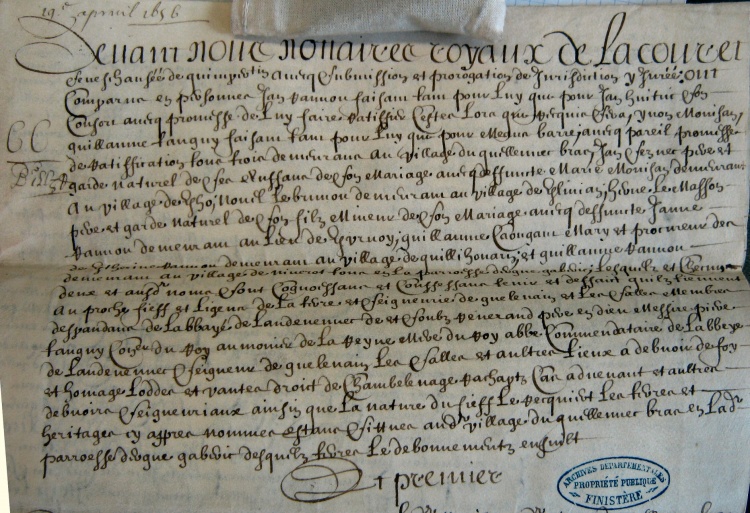 19e apvril 1656
Devant nous nottaires royaux de la cour et
senechaussée de quimper avecq submission et prorogation de Jurisdiction y Jurée ont
Comparus en personnes Jan Vannou faisant tant pour Luy que pour Jan
Consort avecq promesse de Luy faire ratiffier Cestes Lors que Requis sera, yvon Monisan,
guillaume tanguy faisant tant pour Luy que pour barrejancq pareil promesse
de ratiffication tous trois demeurans au village du quellennec bras, Jan pere et
garde naturel de ses Enffans de son Mariage avecq deffuncte Marie Monisan demeurant
au village de Lebrunou demeurant au village de Le Masson
pere et garde naturel de son filz Mineur de son Mariage avecq deffuncte Janne
Vannou demeurant au Lieu de guillaume Cadugant Mary et procureur de
Vannou demeurant au village de quillihouarn, et guillaume Vannou
demeurant au village de tous en la parroesse dergue gaberic Lesquelz et Chacun
deux et ausd. noms sont Cognoissans et Confessans tenir et
au proche fieff et Ligence de La terre et Seigneurie de guelenain et Les Salles Membres
despandans de Labbaye de Landevennec de et soubz Venerand pere en dieu Messire piere
tanguy Coner du Roy aumonier de La Reyne Mere du Roy abbé Commendataire de Labbeye
de Landevennec Seigneur de guelenain Les Salles et aultres Lieux a debvoir de foy
et homage Loddes et vantes droit de Chambelenage Rachaptz Cas advenant et aultres
debvoirs Seigneuriaux ainsin que La nature du fieff Le Requiert Les terres et
heritages cy appres nommes estans Sittues aud. village du quellennec bras en Lad.
parroesse dergue gaberic desquelz terres Le debonnement ensuilt
Et premier
ARCHIVES DÉPARTEMENTALES
PROPRIÉTÉ PUBLIQUE
FINISTÈRE